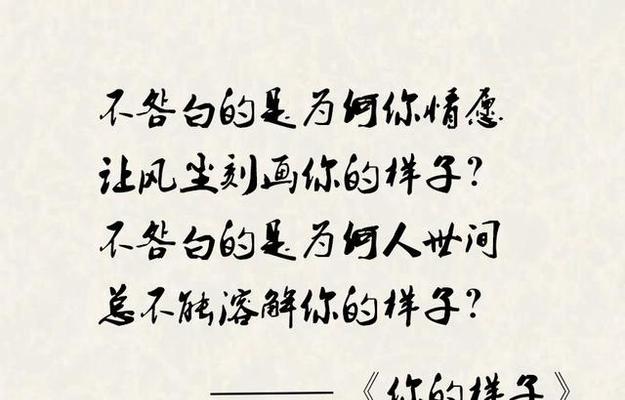 不咎白的是为何你情愿
让风尘刻画你的样子?
不咎白的是为何人世间
总不能溶解你的样子?
——《你的样子》